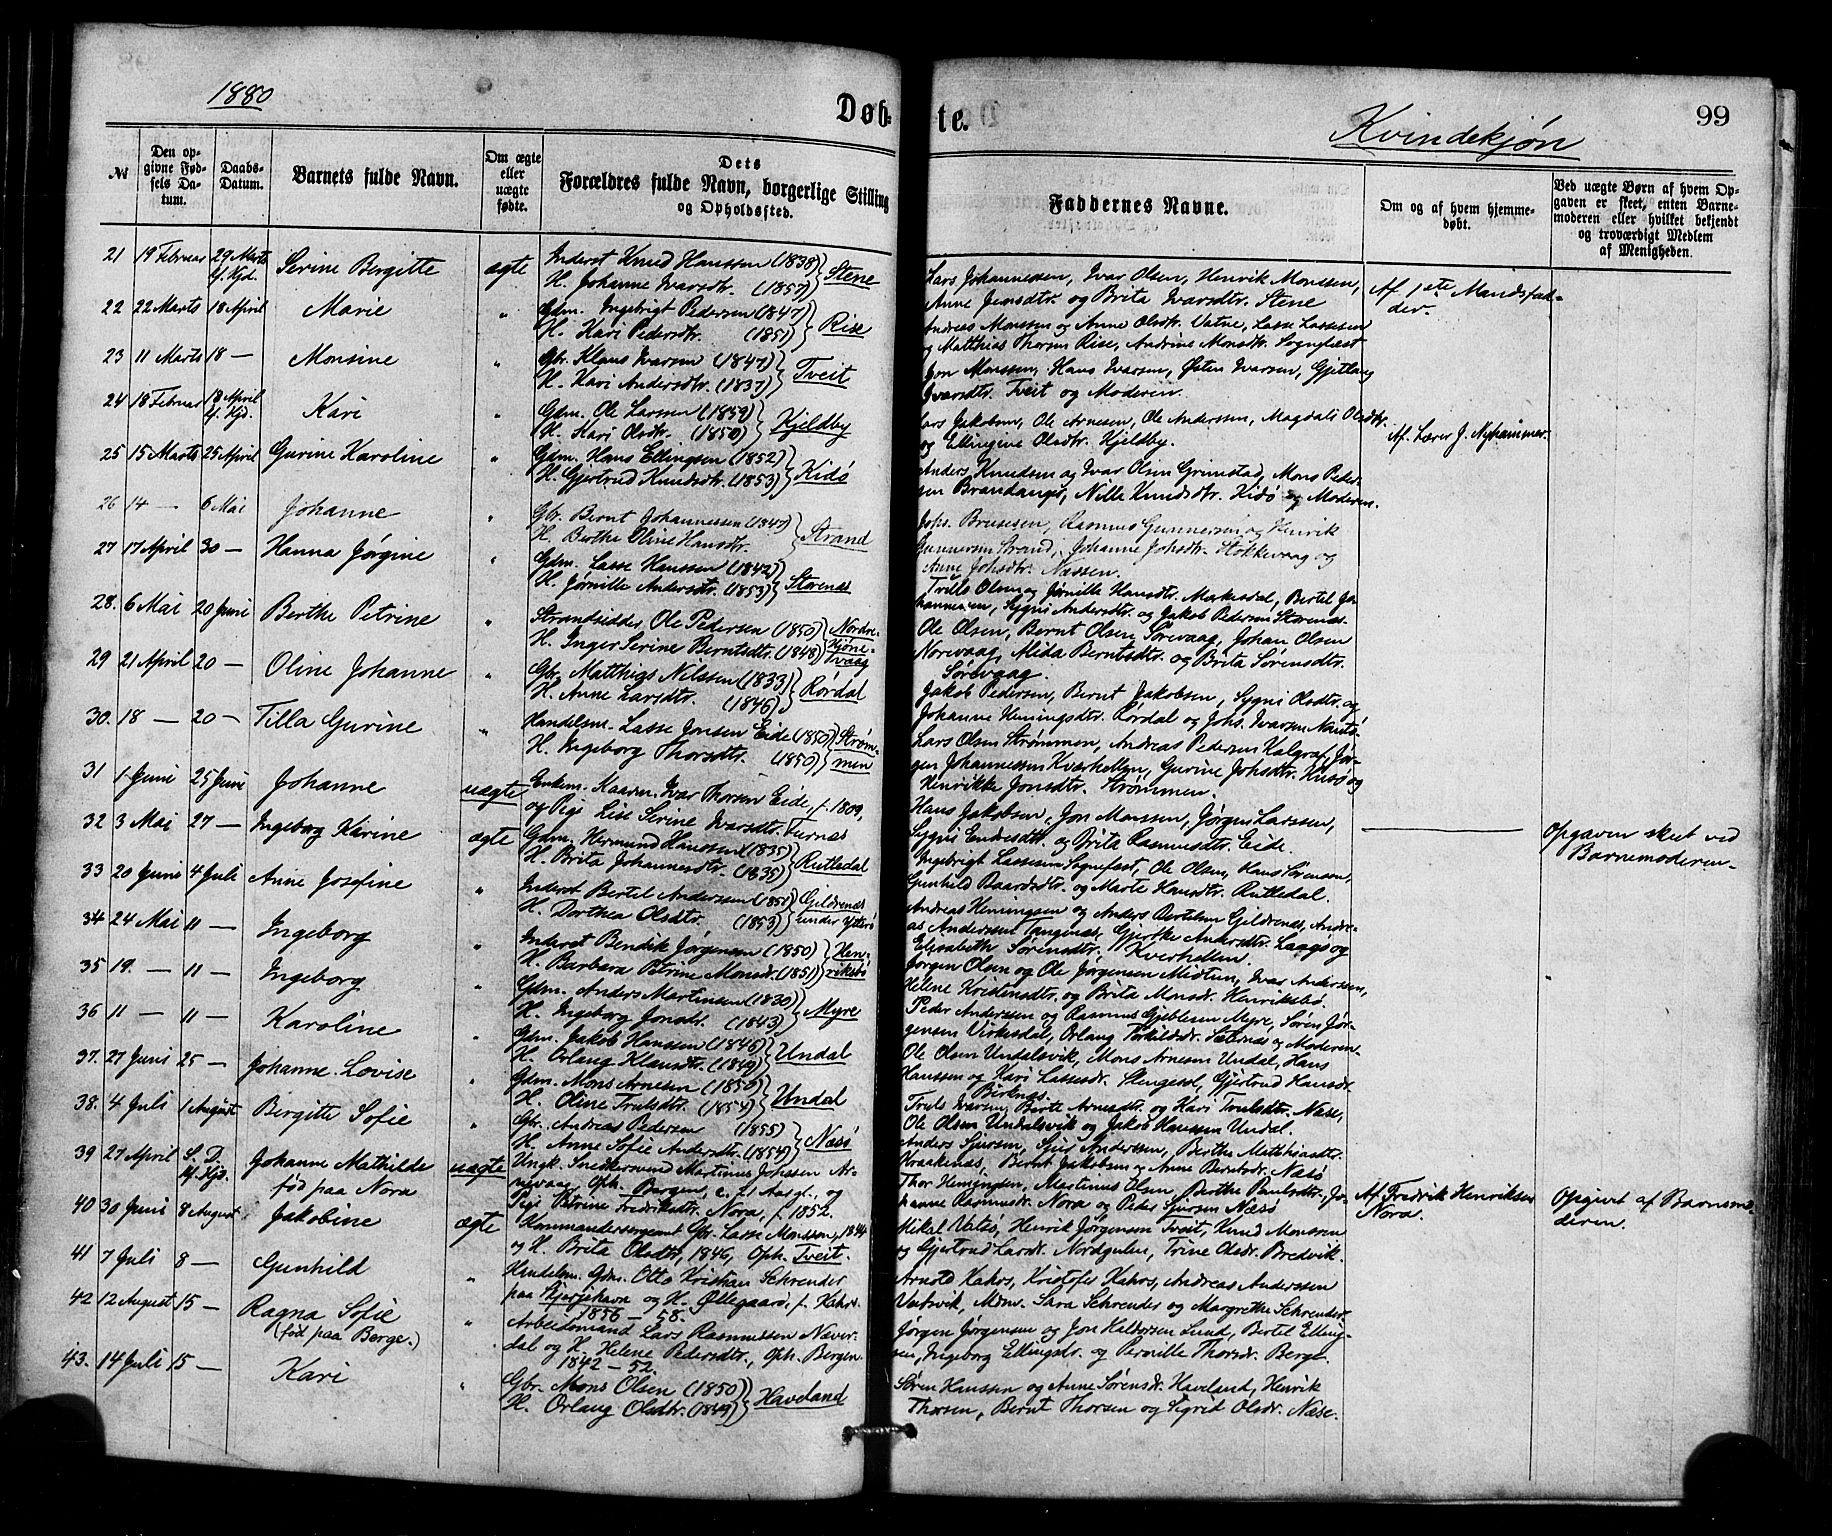 1880
Døb-
te.
Kvindekjøn
99
№
Den op-
givne Fød-
sels Da-
tum.
Daabs-
Datum.
Barnets fulde Navn.
Om ægte
eller
uægte
fødte.
Dets
Forældres fulde Navn, borgerlige Stilling
og Opholdssted.
Faddernes Navne.
Om og af hvem hjemme-
døbt.
Ved uægte Børn af hvem Op-
gaven er skeet, enten Barne-
moderen eller hvilket bekjendt
og troværdigt Medlem
af Menigheden.
21 19 Februar 29 Marts Serine Bergitte ægte Inderst Knud Hanssen (1838) Stene
i/. Kjd. H. Johanne Ivarsdtr. (1857)
Lars Johannessen, Ivar Olsen, Henrik Monssen,
Anne Jensdtr. og Brita Ivarsdtr. Stene
22 22 Marts 18 April Marie " Gdm. Ingebrigt Pedersen (1847) Rise
H. Kari Pedersdtr. (1851)
Andreas Monssen og Anne Olsdtr. Vatne, Lasse Lassesen
og Matthias Thorsen Rise, Andrine Monsdtr. Sognefæst
Af 1ste Mandsfad-
der.
23 11 Marts 18 — Monsine " Gbr. Klaus Ivarsen (1847) Tveit
H. Kari Andersdtr. (1837)
Jon Monssen, Hans Ivarsen, Østen Ivarsen, Gjetlaug
Ivarsdtr. Tveit og Moderen.
24 18 Februar 18 April Kari " Gdm. Ole Larssen (1859) Kjeldby
i/. Kjd. H. Kari Olsdtr. (1850)
Lars Jakobsen, Ole Arnesen, Ole Anderssen, Magdali Olsdtr.
og Ellingine Olsdtr. Kjeldby.
Af Lærer J. Nyhammer.
25 15 Marts 25 April Gurine Karoline " Gdm. Hans Ellingsen (1852) Kidø
H. Gjertrud Knudsdtr. (1853)
Anders Knudsen og Ivar Olsen Grimstad, Mons Peder-
sen Brandanger, Nille Knudsdtr. Kidø og Moderen.
26 14 — 6 Mai Johanne " Gbr. Bernt Johannessen (1847) Strand
H. Berthe Oline Hansdtr.
Johs. Brusesen, Rasmus Gunnersen og Henrik
Gunnersen Strand, Johanne Johsdtr. Stokkevaag og
Anne Johsdtr. Næssen.
27 17 April 30 — Hanna Jørgine " Gdm. Lasse Hanssen (1842) Storenæs
H. Jørnille Andersdtr. (1853)
Truls Olsen og Jørnille Hansdtr. Merkesdal, Bertel Jo-
hannesen, Sygni Andersdtr. og Jakob Pedersen Storenæs.
28. 6 Mai 20 Juni Berthe Petrine " Strandsidder Ole Pedersen (1850) Nordre-
H. Inger Serine Berntsdtr. (1848) Hjøne-
vaag
Ole Olsen, Bernt Olsen Sørevaag, Johan Olsen
Norevaag, Alida Berntsdtr. og Brita Sørensdtr.
Sørevaag.
29 21 April 20 — Oline Johanne " Gbr. Matthias Nilssen (1833) Rørdal
H. Anne Larsdtr. (1846)
Jakob Pedersen, Bernt Jakobsen, Sygni Olsdtr. og
Johanne Heningsdtr. Rørdal og Johs. Ivarsen Nautø.
30. 18 — 20 — Tilla Gurine " Handelsm. Lasse Jonsen Eide (1850) Strøm-
H. Ingeborg Thorsdtr. (1850) men
Lars Olsen Strømmen, Andreas Pedersen Kalgraf, Jør-
gen Johannessen Kværhellen, Gurine Johsdtr. Husø og
Henrikke Jonsdtr. Strømmen.
31 1 Juni 25 Juni Johanne uægte Enkem. Kaarm. Ivar Thorsen Eide, f. 1809,
og Pige Lise Serine Ivarsdtr. Furnæs
Hans Jakobsen, Jon Monssen, Jørgen Larssen,
Sygni Endresdtr. og Brita Rasmusdtr. Eide.
Opgaven skeet ved
Barnemoderen.
32 3 Mai 27 — Ingeborg Karine ægte Gdm. Hermund Hanssen (1835) Rutledal
H. Brita Johannesdtr. (1835)
Ingebrigt Lassesen Sognefæst, Ole Olsen, Hans Sørensen,
Gunhild Baardsdtr. og Marte Hansdtr. Rutledal.
33 20 Juni 4 Juli Anne Josefine " Inderst Bertel Andersen (1851) Gjeldrenæs
H. Dorthea Olsdtr. (1853) under Ytterø
Andreas Heningsen og Anders Bertelsen Geldrenæs, Andre-
as Anderssen Tangenæs, Gjertke Andersdtr. Laags og
Elisabeth Sørensdtr. Kverhellen.
34 24 Mai 11 — Ingeborg " Inderst Bendik Jørgensen (1850) Hen-
H. Barbara Petrine Monsdr. (1851) riksbø
Jørgen Olsen og Ole Jørgensen Midtun, Ivar Andersen,
Helene Kristensdtr. og Brita Monsdr. Henriksbø.
35 19. — 11 — Ingeborg " Gdm. Anders Martinsen (1830) Myre
H. Ingeborg Jonsdr. (1843)
Peder Anderssen og Rasmus Gjeblesen Myre, Søren Jør-
gensen Virkesdal, Orlaug Torkildsdr. Sæternæs og Moderen.
36 11 — 11 — Karoline " Gdm. Jakob Hanssen (1846) Undal
H. Orlaug Klausdtr. (1849)
Ole Olsen Undalsvik, Mons Arnesen Undal, Hans
Hanssen og Kari Lassesdr. Stengesol, Gjertrud Hansdr.
Birknes.
37. 27 Juni 25 — Johanne Lovise " Gdm. Mons Arnesen (1850) Undal
H. Oline Trulsdtr. (1854)
Truls Ivarsen, Berte Arnesdtr. og Kari Trulsdtr. Næse,
Ole Olsen Undalsvik og Jakob Hanssen Undal.
38. 4 Juli 1 August Birgitte Sofie " Gbr. Andreas Pedersen (1855) Næsø
H. Anne Sofie Andersdtr. (1854)
Anders Sjursen, Sjur Andersen, Berthe Matthiasdtr.
Kraakenæs, Bernt Jakobsen og Anne Berntsdr. Næsø
39 27 April S. D. Johanne Mathilde uægte Ungk. Snedkersvend Martinus Johssen Ar-
i/. Kjd. født paa Nora nevaag, Oph. Bergen, c. 21 Aar gl., og
Pige Petrine Fredriksdtr. Nora, f. 1852.
Thor Heningsen, Martinus Olsen, Berthe Paulsdtr., Jo-
hanne Rasmusdtr. Nora og Peder Sjursen Næsø
Af Fredrik Henriksen
Nora.
Opgivet af Barnemo-
deren.
40 30 Juni 8 August Jakobine ægte Kommandersergeant Gbr. Lasse Monssen, 1844
og H. Brita Olsdtr., 1846, Oph. Tveit.
Mikal Vatsø, Henrik Jørgensen Tveit, Knud Monssen
og Gjertrud Larsdr. Nordgulen, Trine Olsdr. Bredvik.
41 7 Juli 8 — Gunhild " Handelsm. Gdm. Otto Kristian Schrender
paa Bjergehavn og H. Øllegaard, f. Kahrs.
1856 - 58.
Arnold Kahrs, Kristofer Kahrs, Andreas Anderssen
Vatsvik, Mdm. Sara Schrender og Margrethe Schrender.
42 12 August 15 — Ragna Sofie " Arbeidsmand Lars Rasmussen Næver-
(født paa Berge.) dal og H. Helene Pedersdtr., Oph. Bergen.
1842 - 52.
Jørgen Jørgensen og Jon Haldorsen Lund, Bertel Elling-
sen, Ingeborg Ellingsdr. og Pernille Thorsdr. Berge.
43. 14 Juli 15 — Kari " Gbr. Mons Olsen (1850) Haveland
H. Orlaug Olsdtr. (1849)
Søren Hanssen og Anne Sørensdr. Haveland, Henrik
Thorsen, Bernt Thorsen og Sigrid Olsdr. Næse.